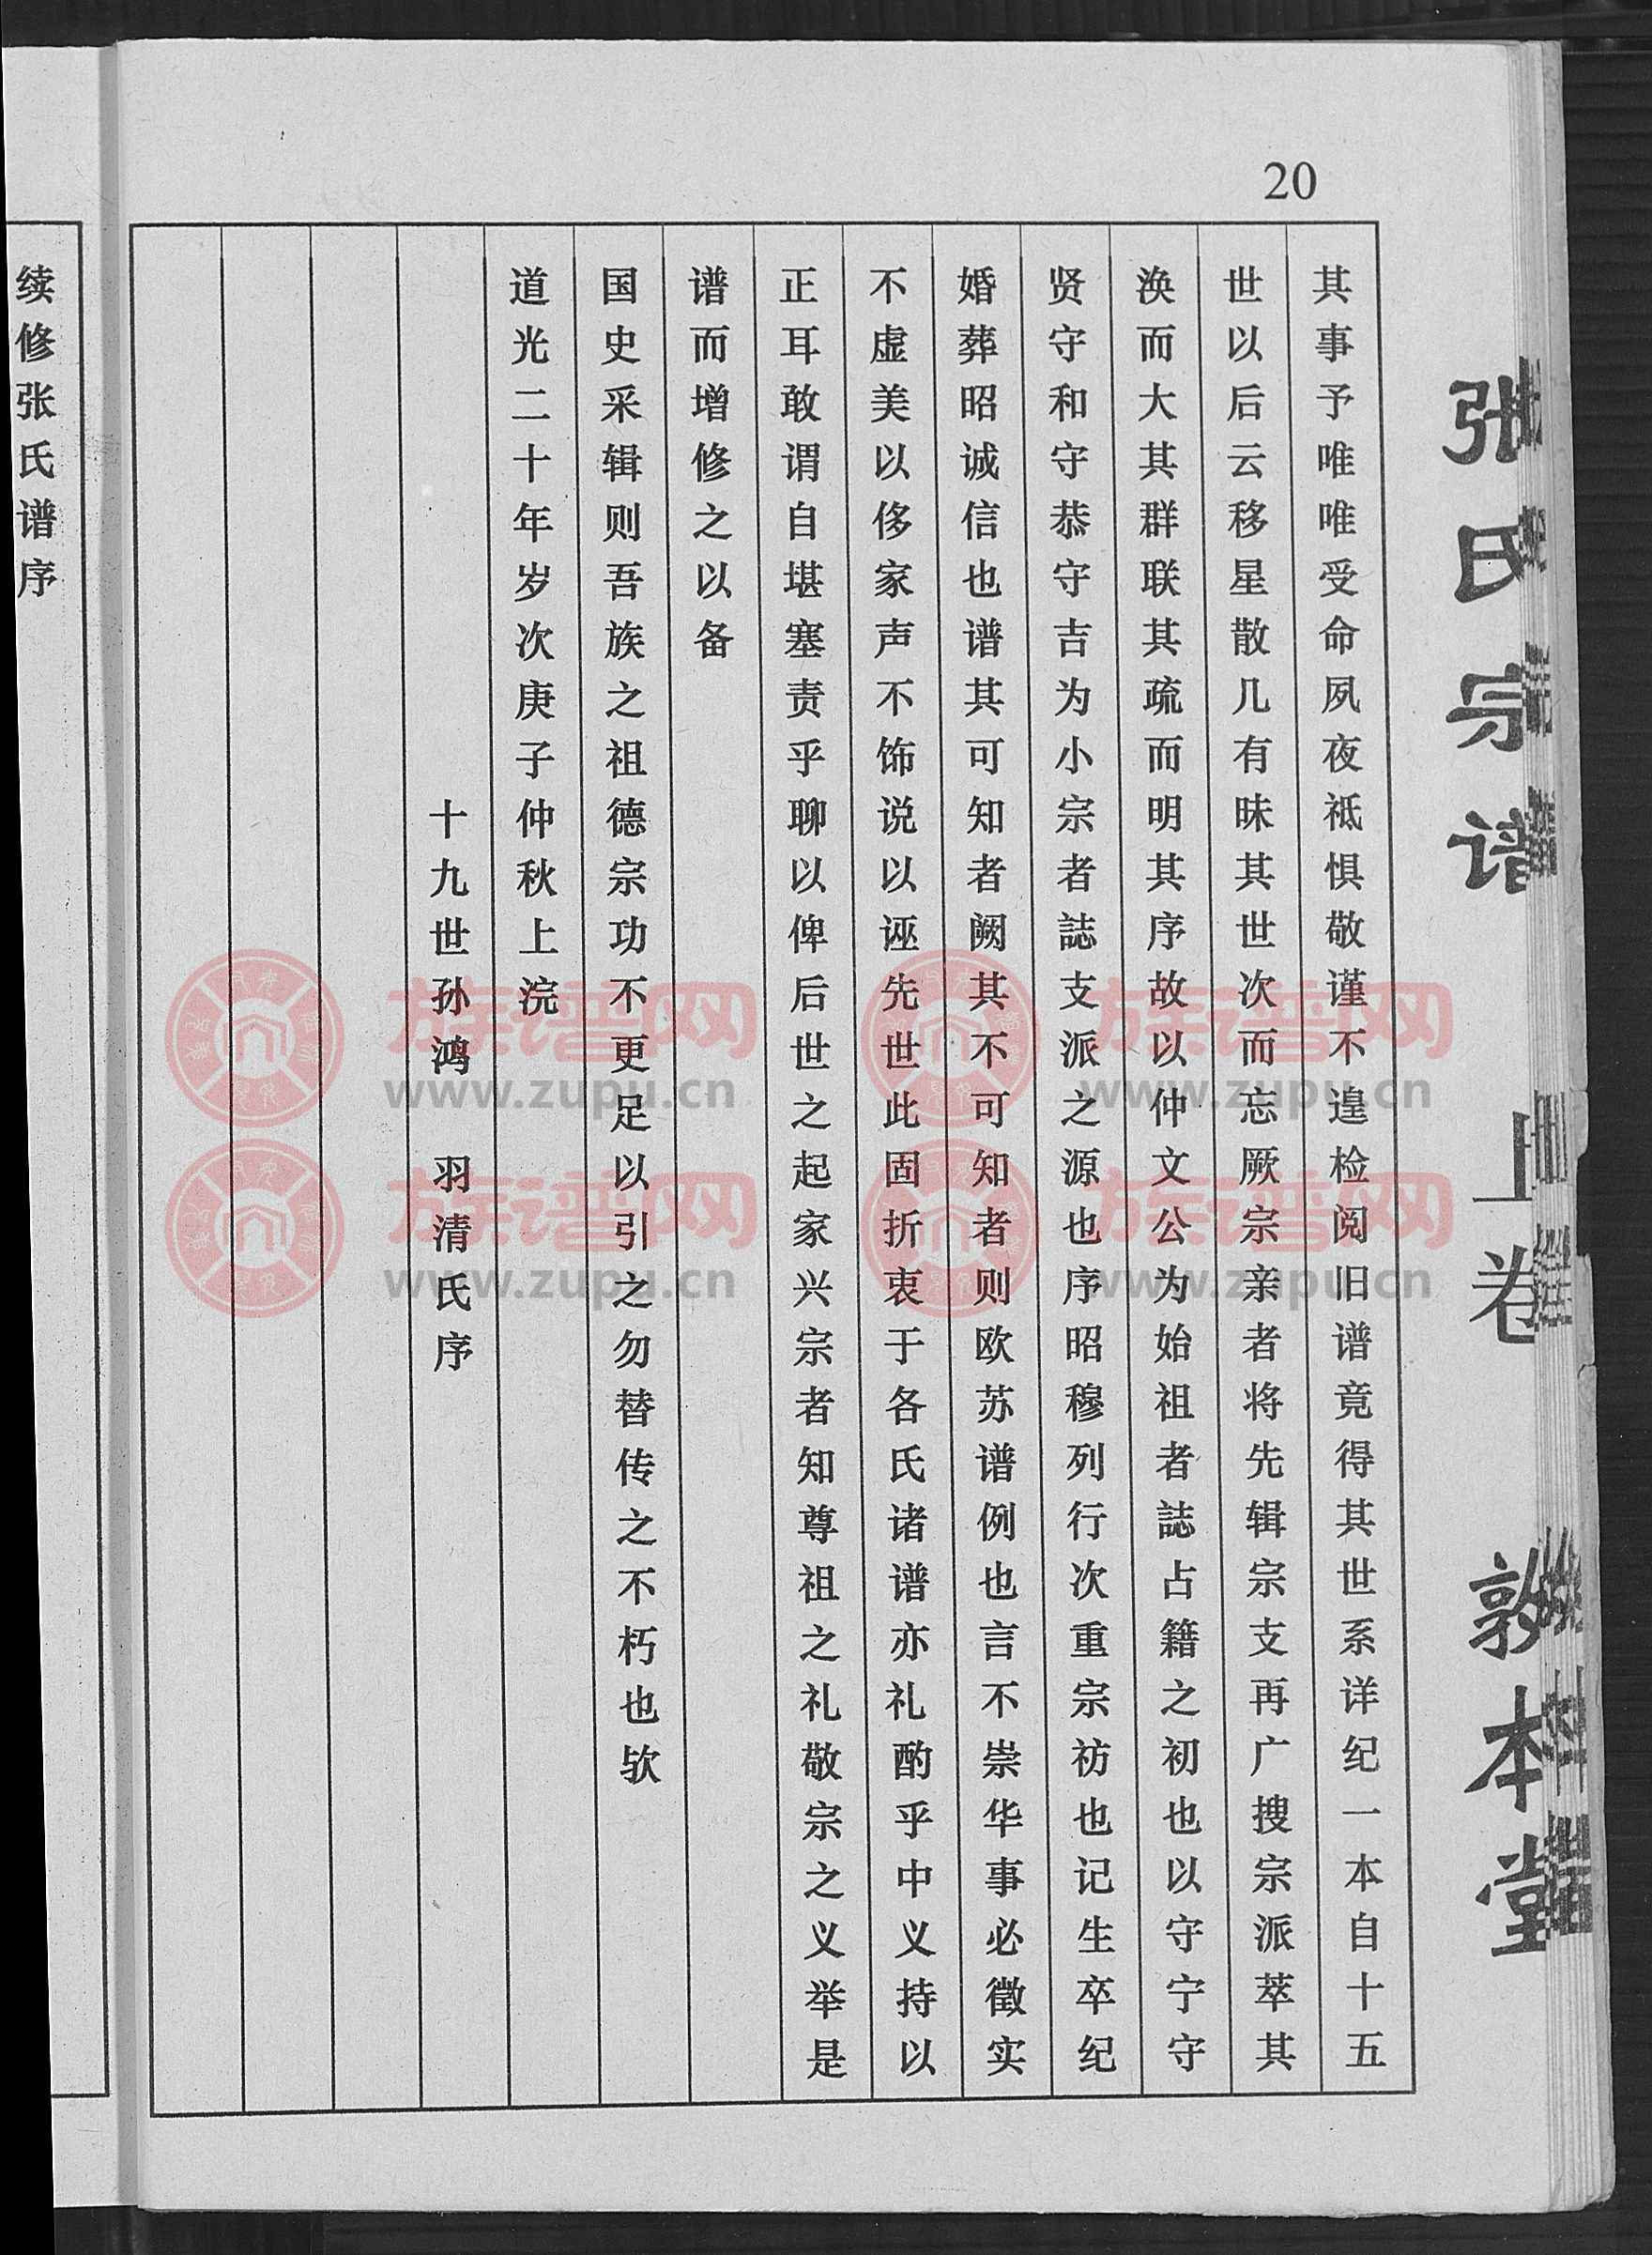 20
其事予唯唯受命夙夜祗惧敬谨不遑检阅旧谱竟得其世系详纪一本自十五
世以后云移星散几有昧其世次而忘厥宗亲者将先辑宗支再广搜宗派萃其
涣而大其群联其疏而明其序故以仲文公为始祖者誌占籍之初也以守宁守
贤守和守恭守吉为小宗者誌支派之源也序昭穆列行次重宗祊也记生卒纪
婚葬昭诚信也谱其可知者阙其不可知者则欧苏谱例也言不崇华事必徵实
不虚美以侈家声不饰说以诬先世此固折衷于各氏诸谱亦礼酌乎中义持以
正耳敢谓自堪塞责乎聊以俾后世之起家兴宗者知尊祖之礼敬宗之义举是
谱而增修之以备
国史采辑则吾族之祖德宗功不更足以引之勿替传之不朽也欤
道光二十年岁次庚子仲秋上浣
十九世孙鸿 羽清氏序
张氏宗谱 上卷 敦本堂
续修张氏谱序
族谱网
www.zupu.cn
族谱网
www.zupu.cn
族谱网
www.zupu.cn
族谱网
www.zupu.cn